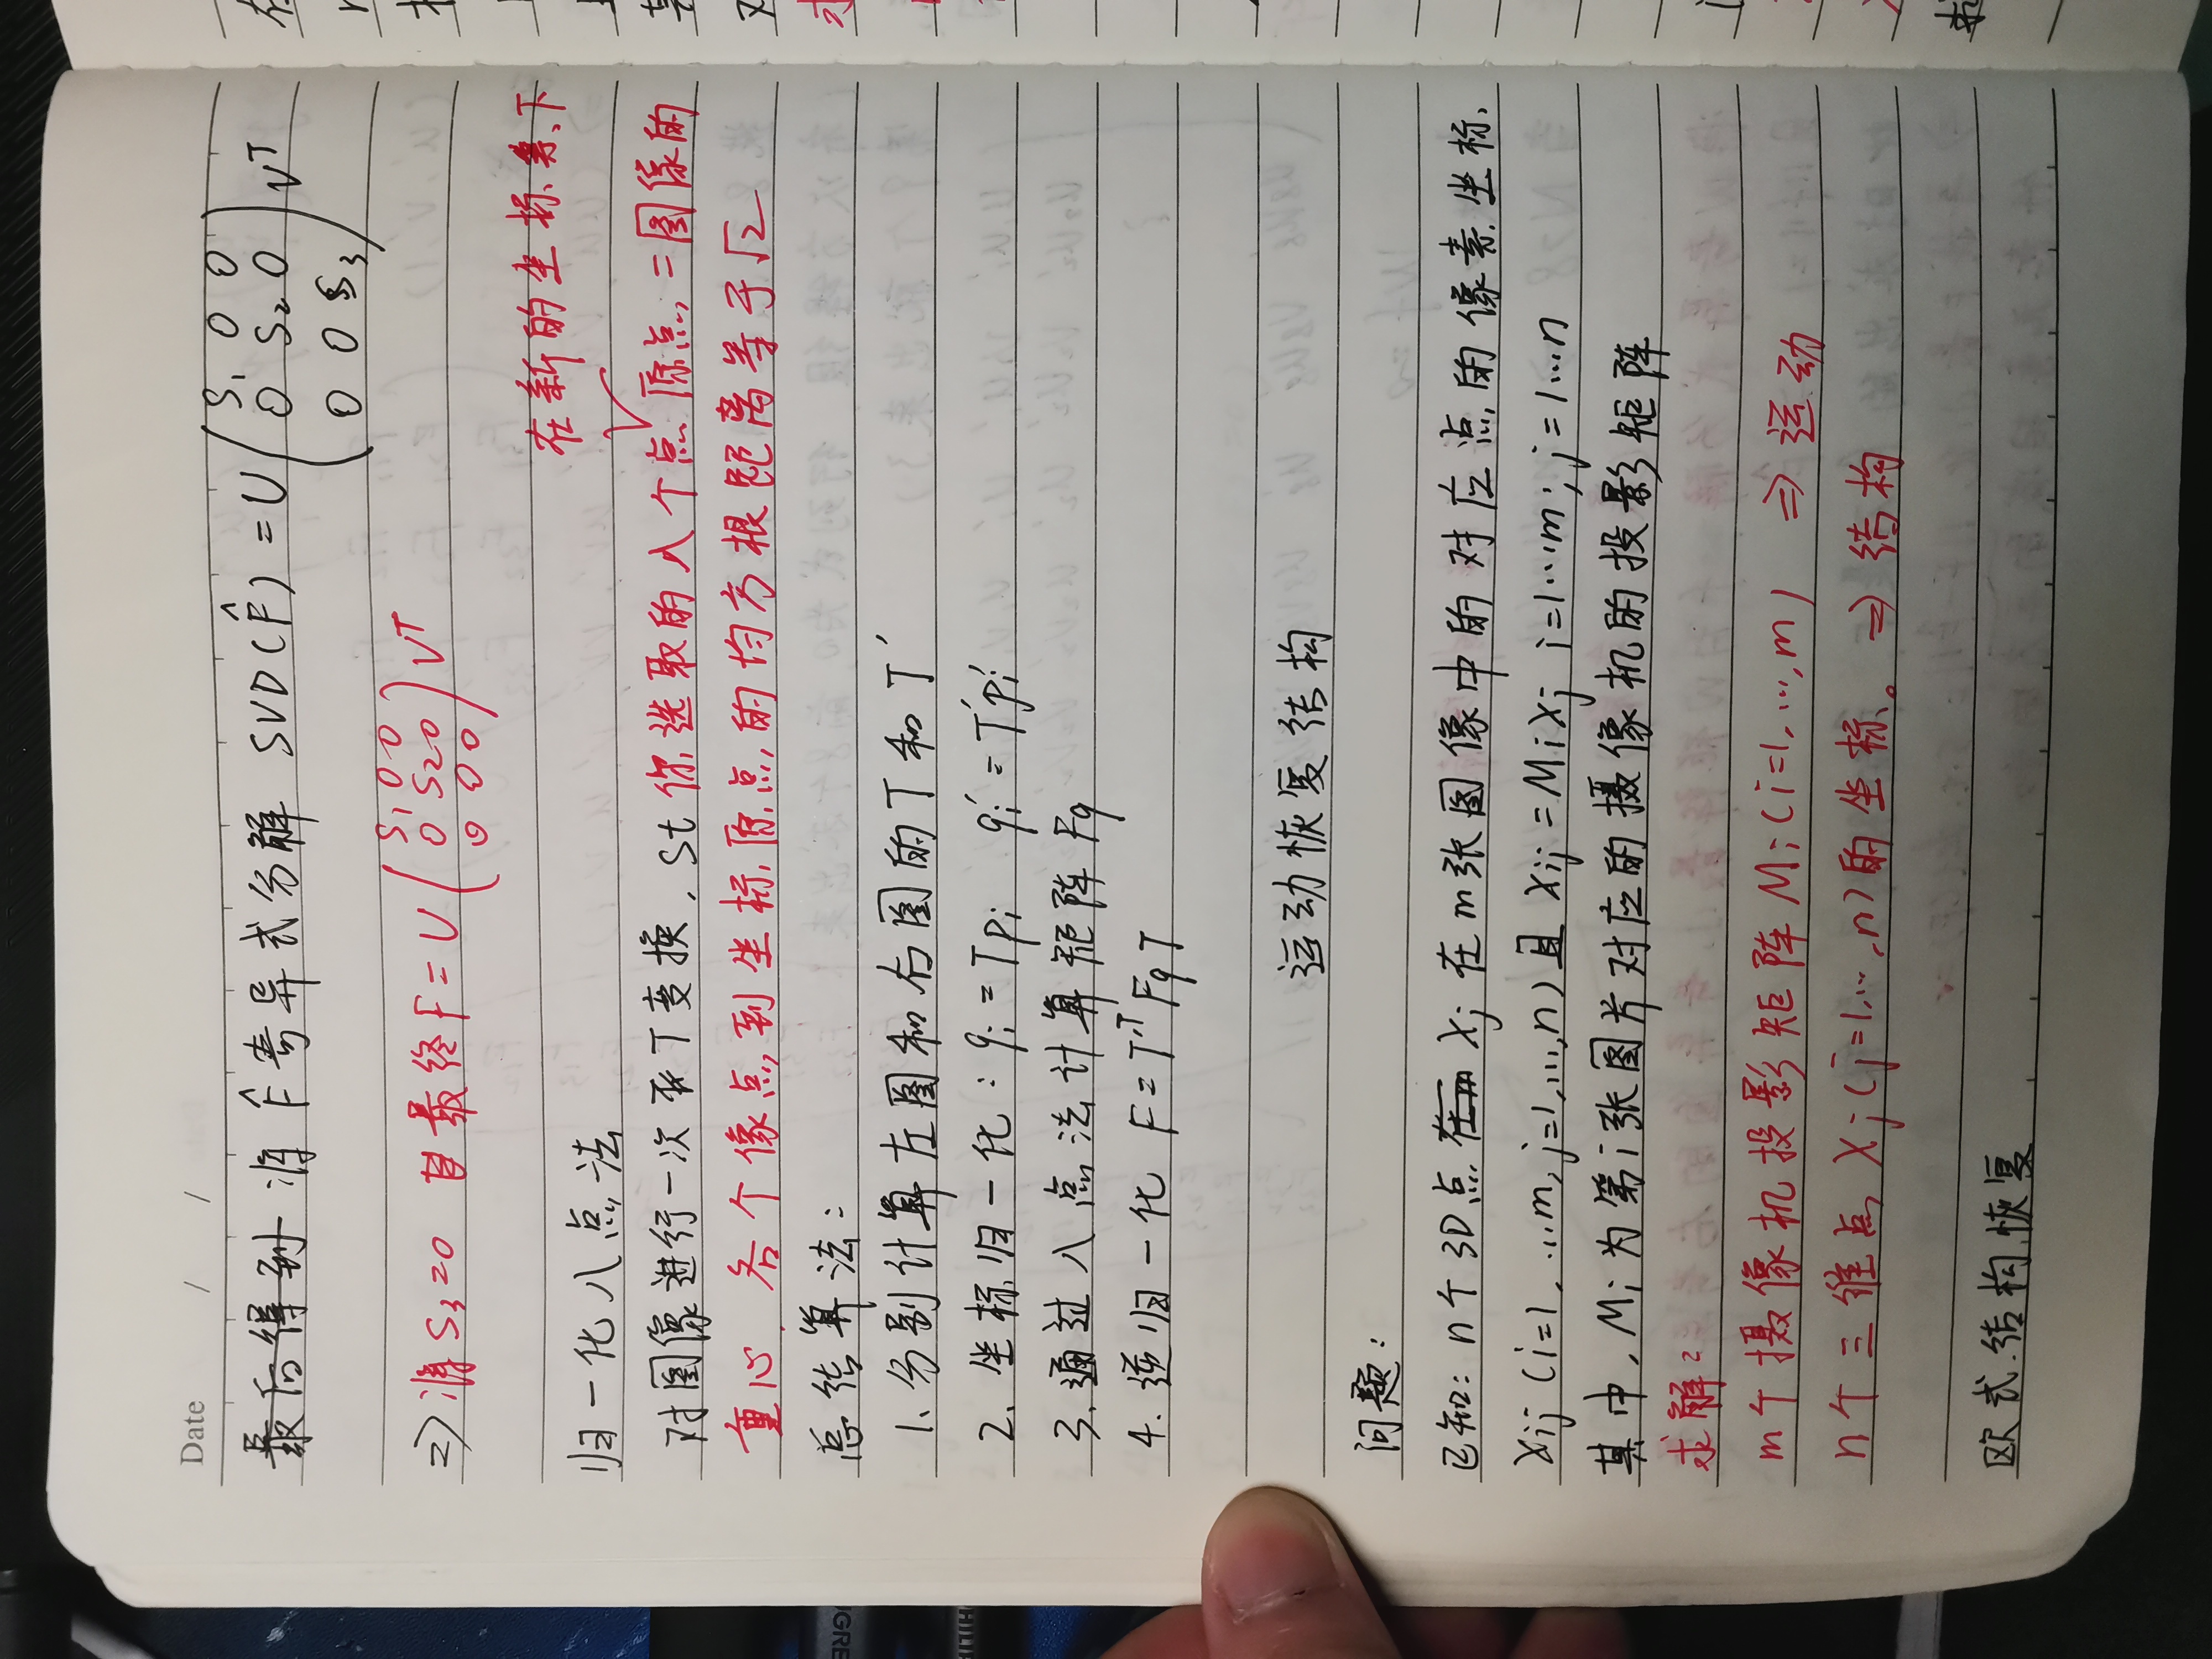 Date / /
最后得到 将 F̂ 奇异式分解 SVD(F̂) = U (S₁ 0 0
0 S₂ 0
0 0 S₃) Vᵀ
=) 将 S₃20 最终 F = U (S₁ 0 0
0 S₂ 0
0 0 0) Vᵀ
在新的坐标系下
归一化八点法
对图像进行一次 T变换, st 你选取的八个点 原点=图像的
重心 各个像点到坐标原点的均方根距离等于√2
总结算法:
1. 分别计算左图和右图的 T 和 T'
2. 坐标归一化: qᵢ = Tpᵢ qᵢ' = T'pᵢ'
3. 通过八点法计算矩阵 Fq
4. 逆归一化 F = T'ᵀFqT
运动恢复结构
问题:
已知: n个3D点 在m Xⱼ 在m张图像中的对应点的像素坐标.
Xᵢⱼ (i=1, ..., m, j=1, ..., n) 且 Xᵢⱼ = MᵢXⱼ i=1...m; j=1...n
其中, Mᵢ为第i张图片对应的摄像机的投影矩阵
求解:
m个摄像机投影矩阵 Mᵢ (i=1, ..., m) => 运动
n个三维点 Xⱼ (j=1, ..., n) 的坐标。 => 结构
欧式结构恢复